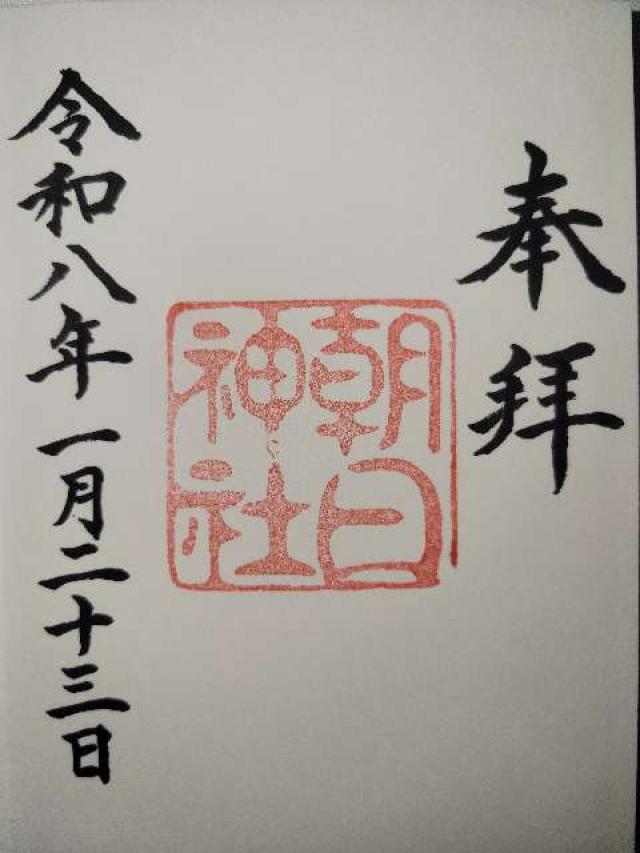 奉拝
朝日
神社
令和八年一月二十三日